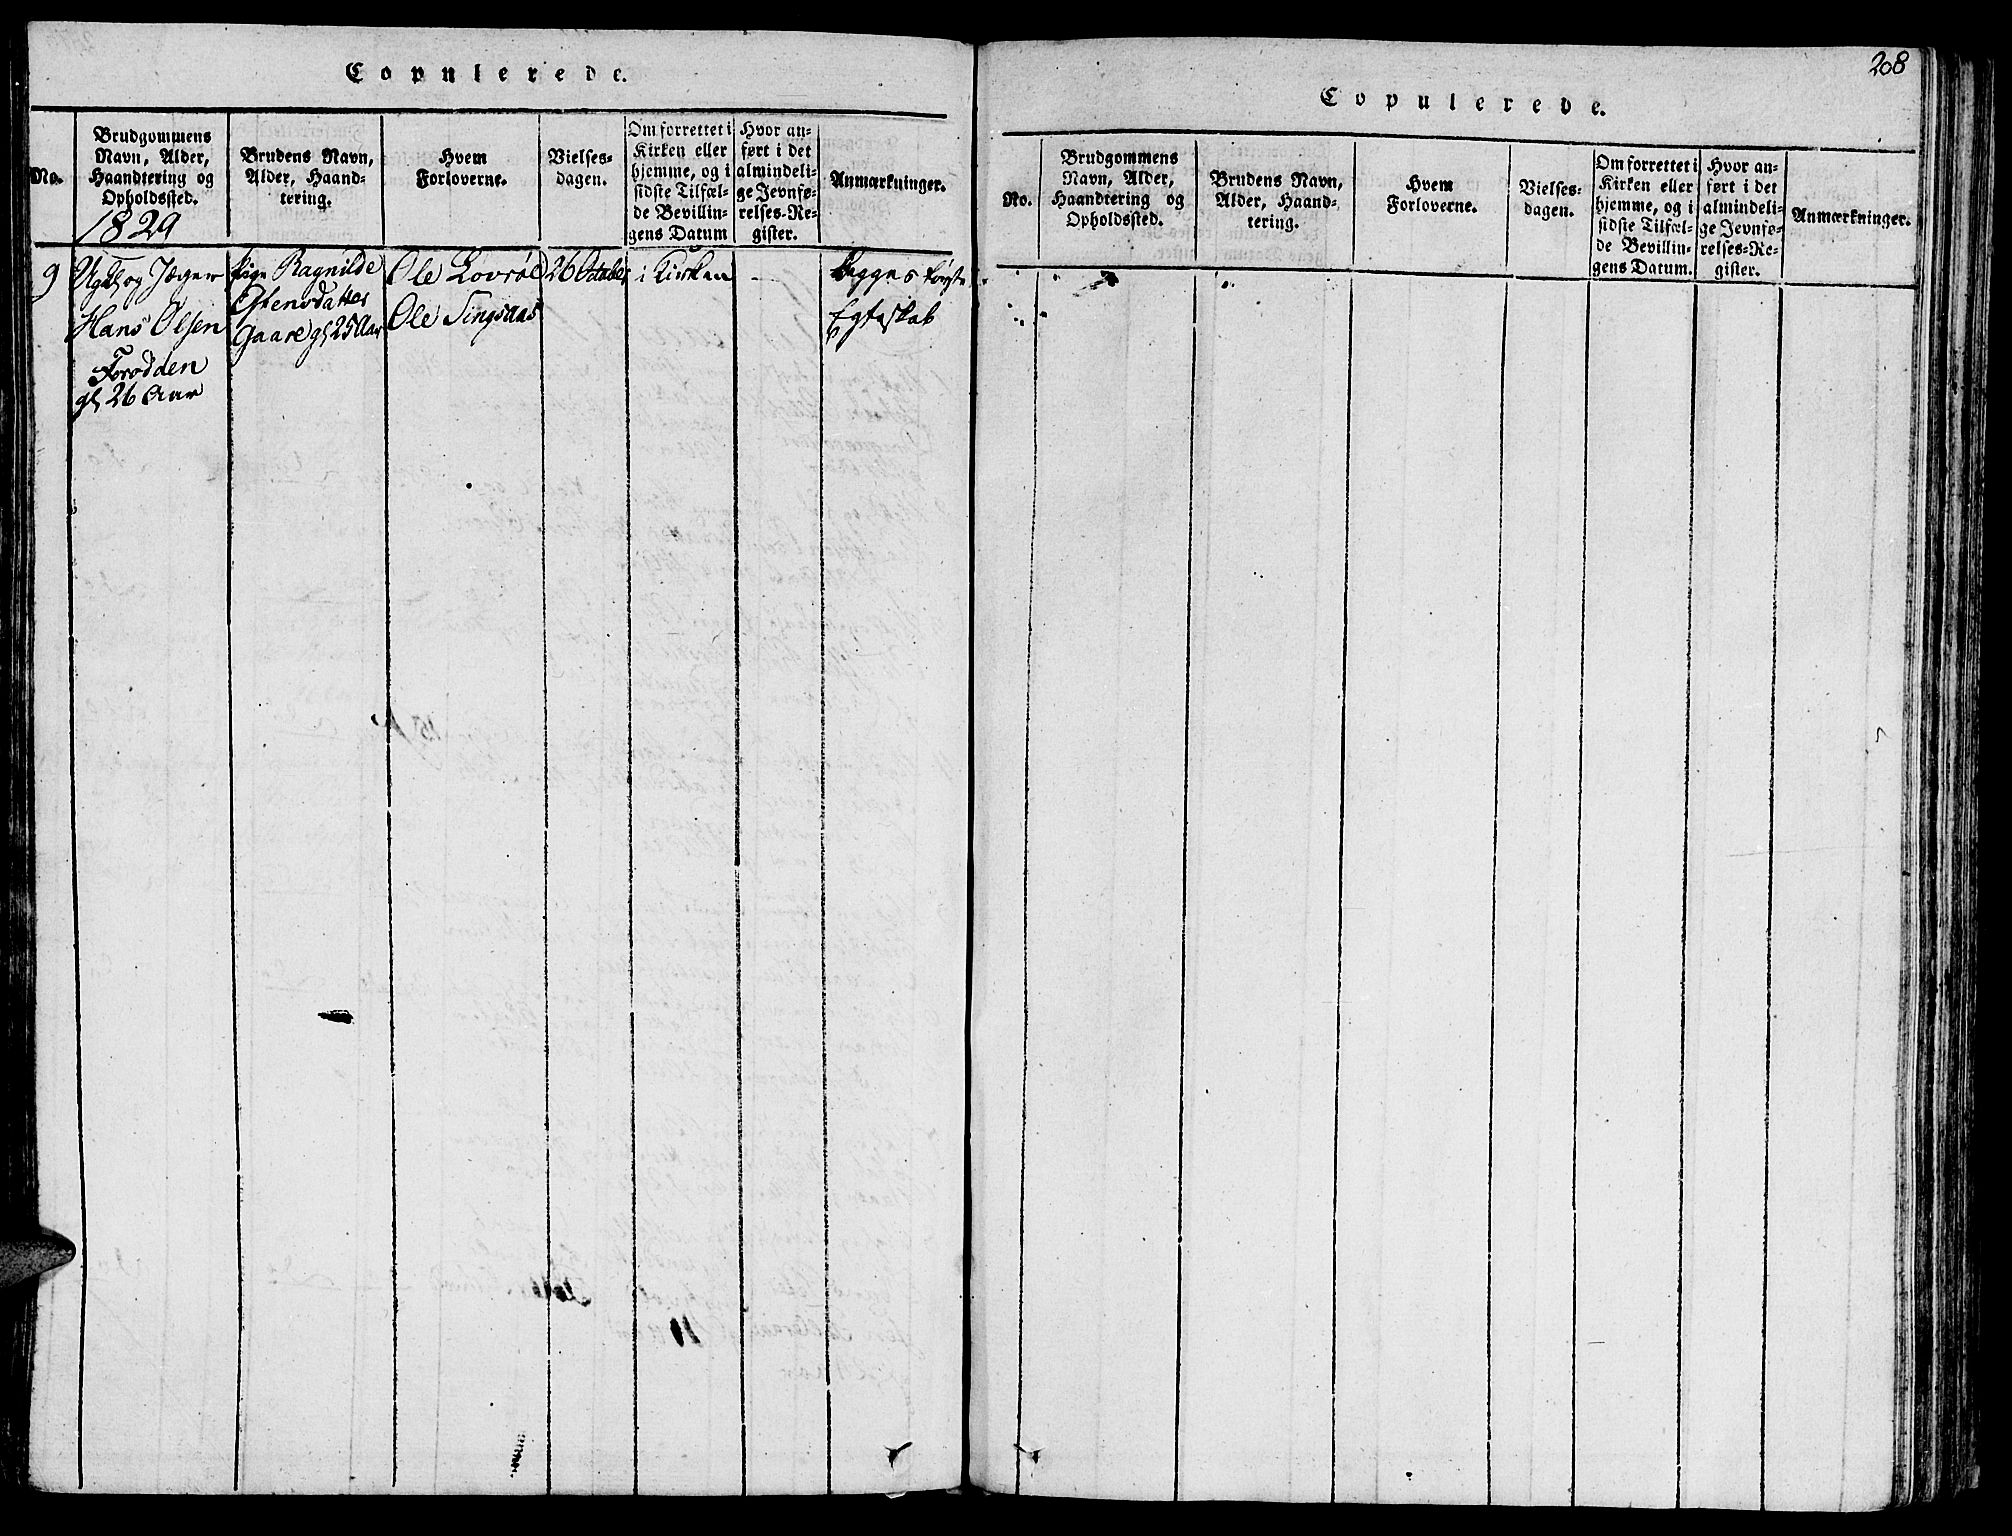 Copulerede.
No.
Brudgommens
Navn, Alder,
Haandtering og
Opholdssted.
Brudens Navn,
Alder, Haand-
tering.
Hvem
Forloverne.
Vielses-
dagen.
Om forrettet i
Kirken eller
hjemme, og i
sidste Tilfæl-
de Bevillin-
gens Datum
Hvor an-
ført i det
almindeli-
ge Jevnfø-
relses-Re-
gister.
Anmærkninger.
1829
9
og Jæger
Hans Olsen
gl 26 Aar
Pige Ragnilde
Estensdatter
Gaare gl 25 Aar
Ole Lovrød
Ole Singsaas
26 October
i Kirken
Begges første
Egteskab
208
Copulerede.
No.
Brudgommens
Navn, Alder,
Haandtering og
Opholdssted.
Brudens Navn,
Alder, Haand-
tering.
Hvem
Forloverne.
Vielses-
dagen.
Om forrettet i
Kirken eller
hjemme, og i
sidste Tilfæl-
de Bevillin-
gens Datum.
Hvor an-
ført i det
almindeli-
ge Jevnfø-
relses-Re-
gister.
Anmærkninger.